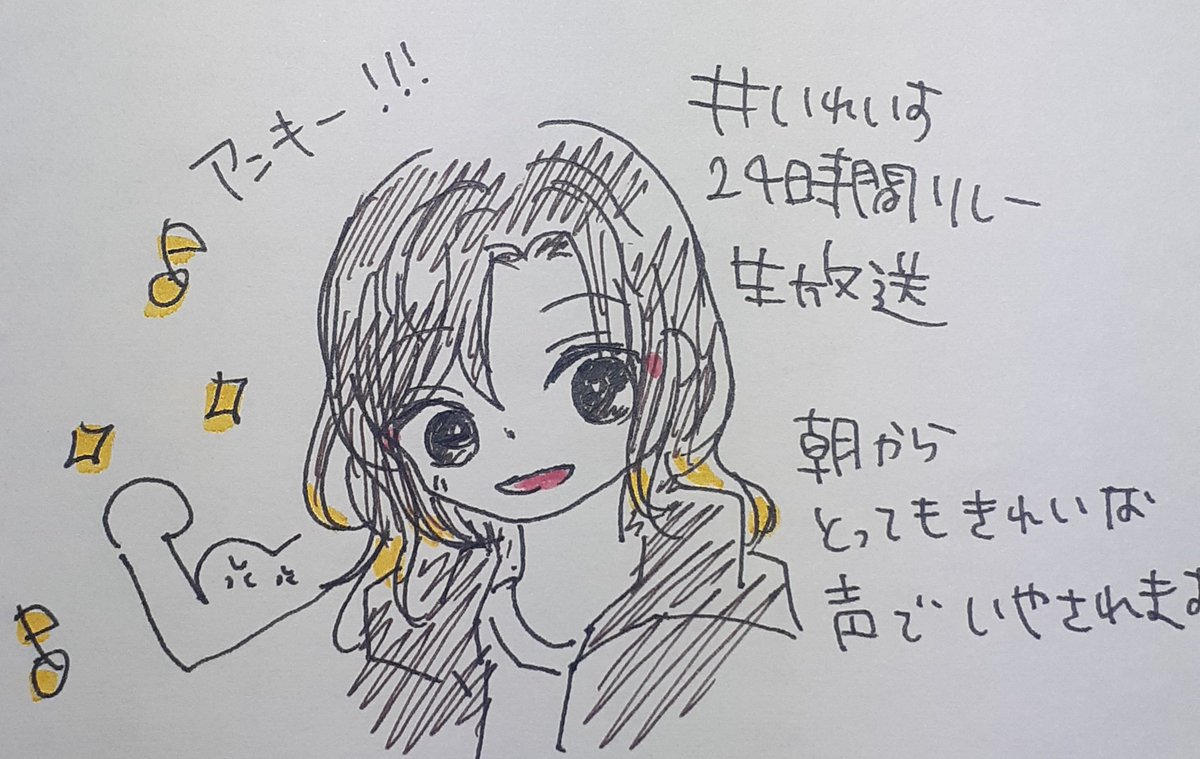 アンキー!!!
#いれいす
24時間リレー
生放送
朝から
とってもきれいな
声でいやされます